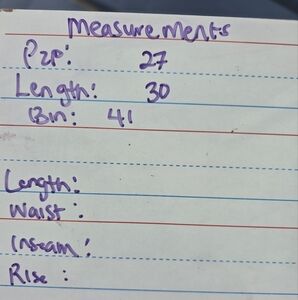 Measurements
P2P: 27
Length: 30
Bin: 41
Length:
Waist:
Inseam:
Rise: